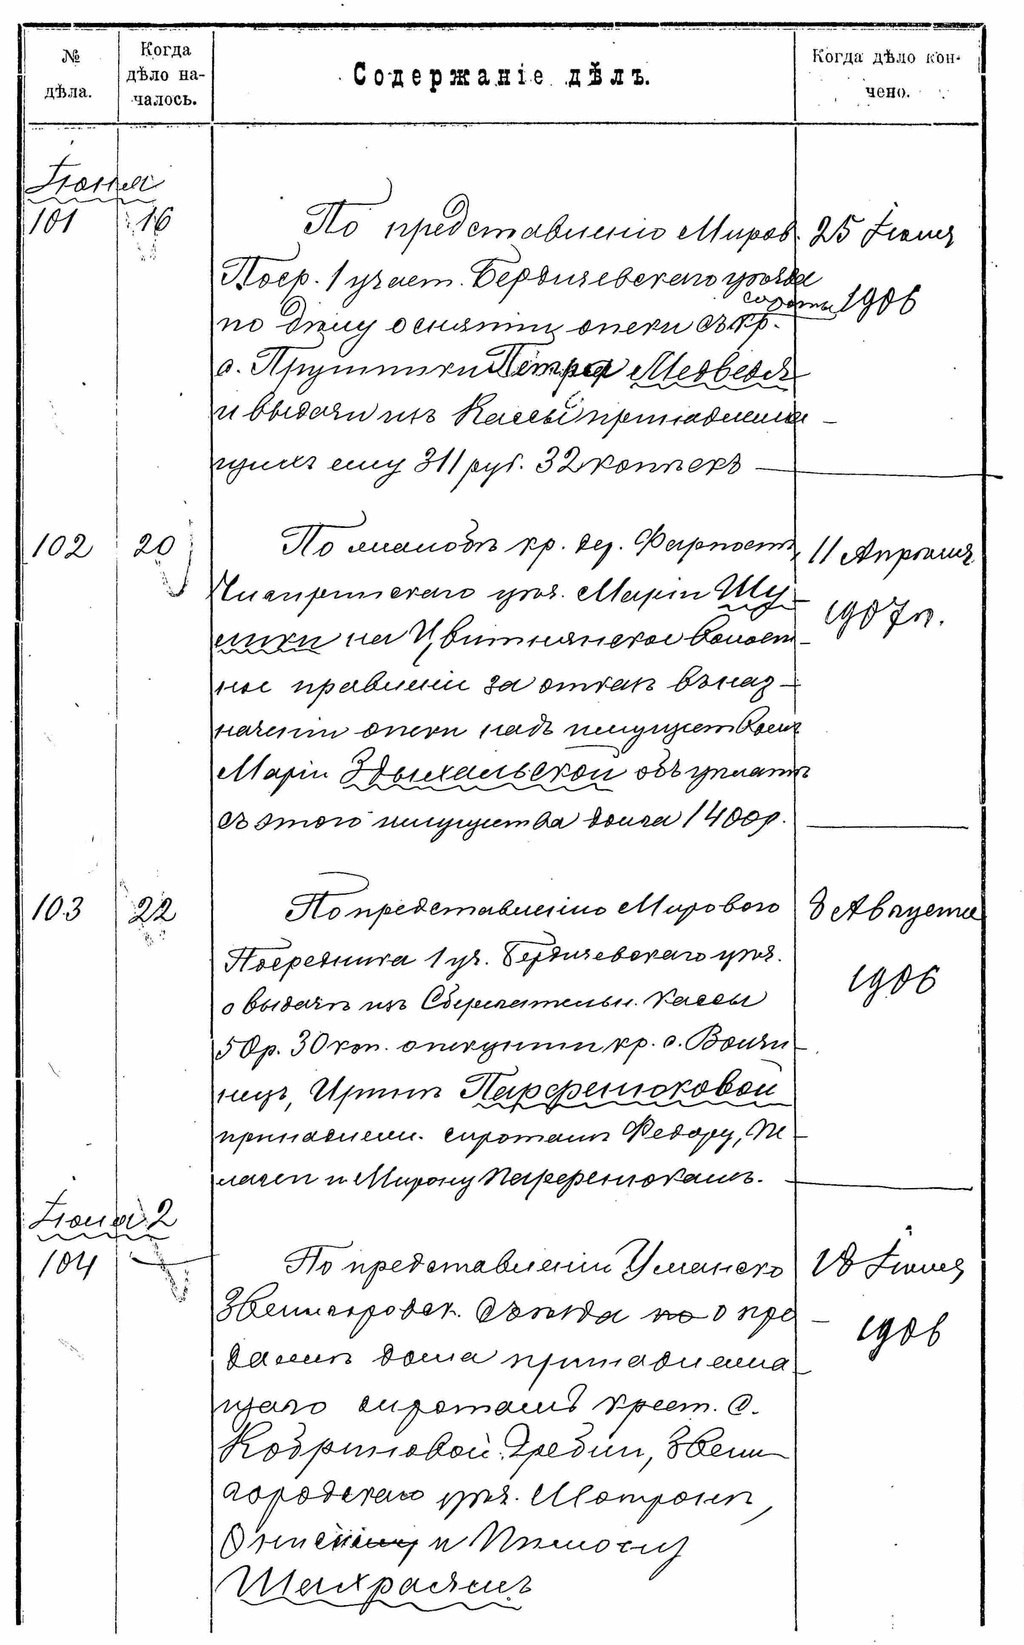 № дѣла.
Когда дѣло началось.
Содержаніе дѣлъ.
Когда дѣло кончено.
Іюня
101 16 По представленію Миров. 25 Іюля
Поср. 1 участ. Бердичевскаго уѣзда 1906
по дѣлу о снятіи опеки съ кр. сироты
с. Прушинки Петра Медведя
и выдачи изъ Кассы принадлежа
щихъ ему 311 руб. 32 копѣекъ
102 20 По жалобѣ кр. дер. Фарпостъ, 11 Апрѣля
Чигиринскаго уѣз. Маріи Шу 1907 г.
лики на Цвитнянское волост
ное правленіе за отказъ въ наз
наченіи опеки надъ имуществомъ
Маріи Здыхальской объ уплатѣ
съ этого имущества долга 1400 р.
103 22 По представленію Мирового 8 Августа
Посредника 1 уч. Бердичевскаго уѣз. 1906
о выдачѣ изъ Сберегательн. кассы
50 р. 30 коп. опекунши кр. с. Волчи
нецъ, Иринѣ Парфенюковой
принадлеж. сиротамъ Федору, Пе
лагеи и Мирону Парфенюкамъ.
Іюля 2
104 По представленіи Уманско 18 Іюля
Звенигородск. Съѣзда о про 1906
дажѣ дома принадлежа
щаго сиротамъ крест. с.
Кобриновой Гребли, Звени
городскаго уѣз. Мотронѣ,
и Пимону
Шахраямъ